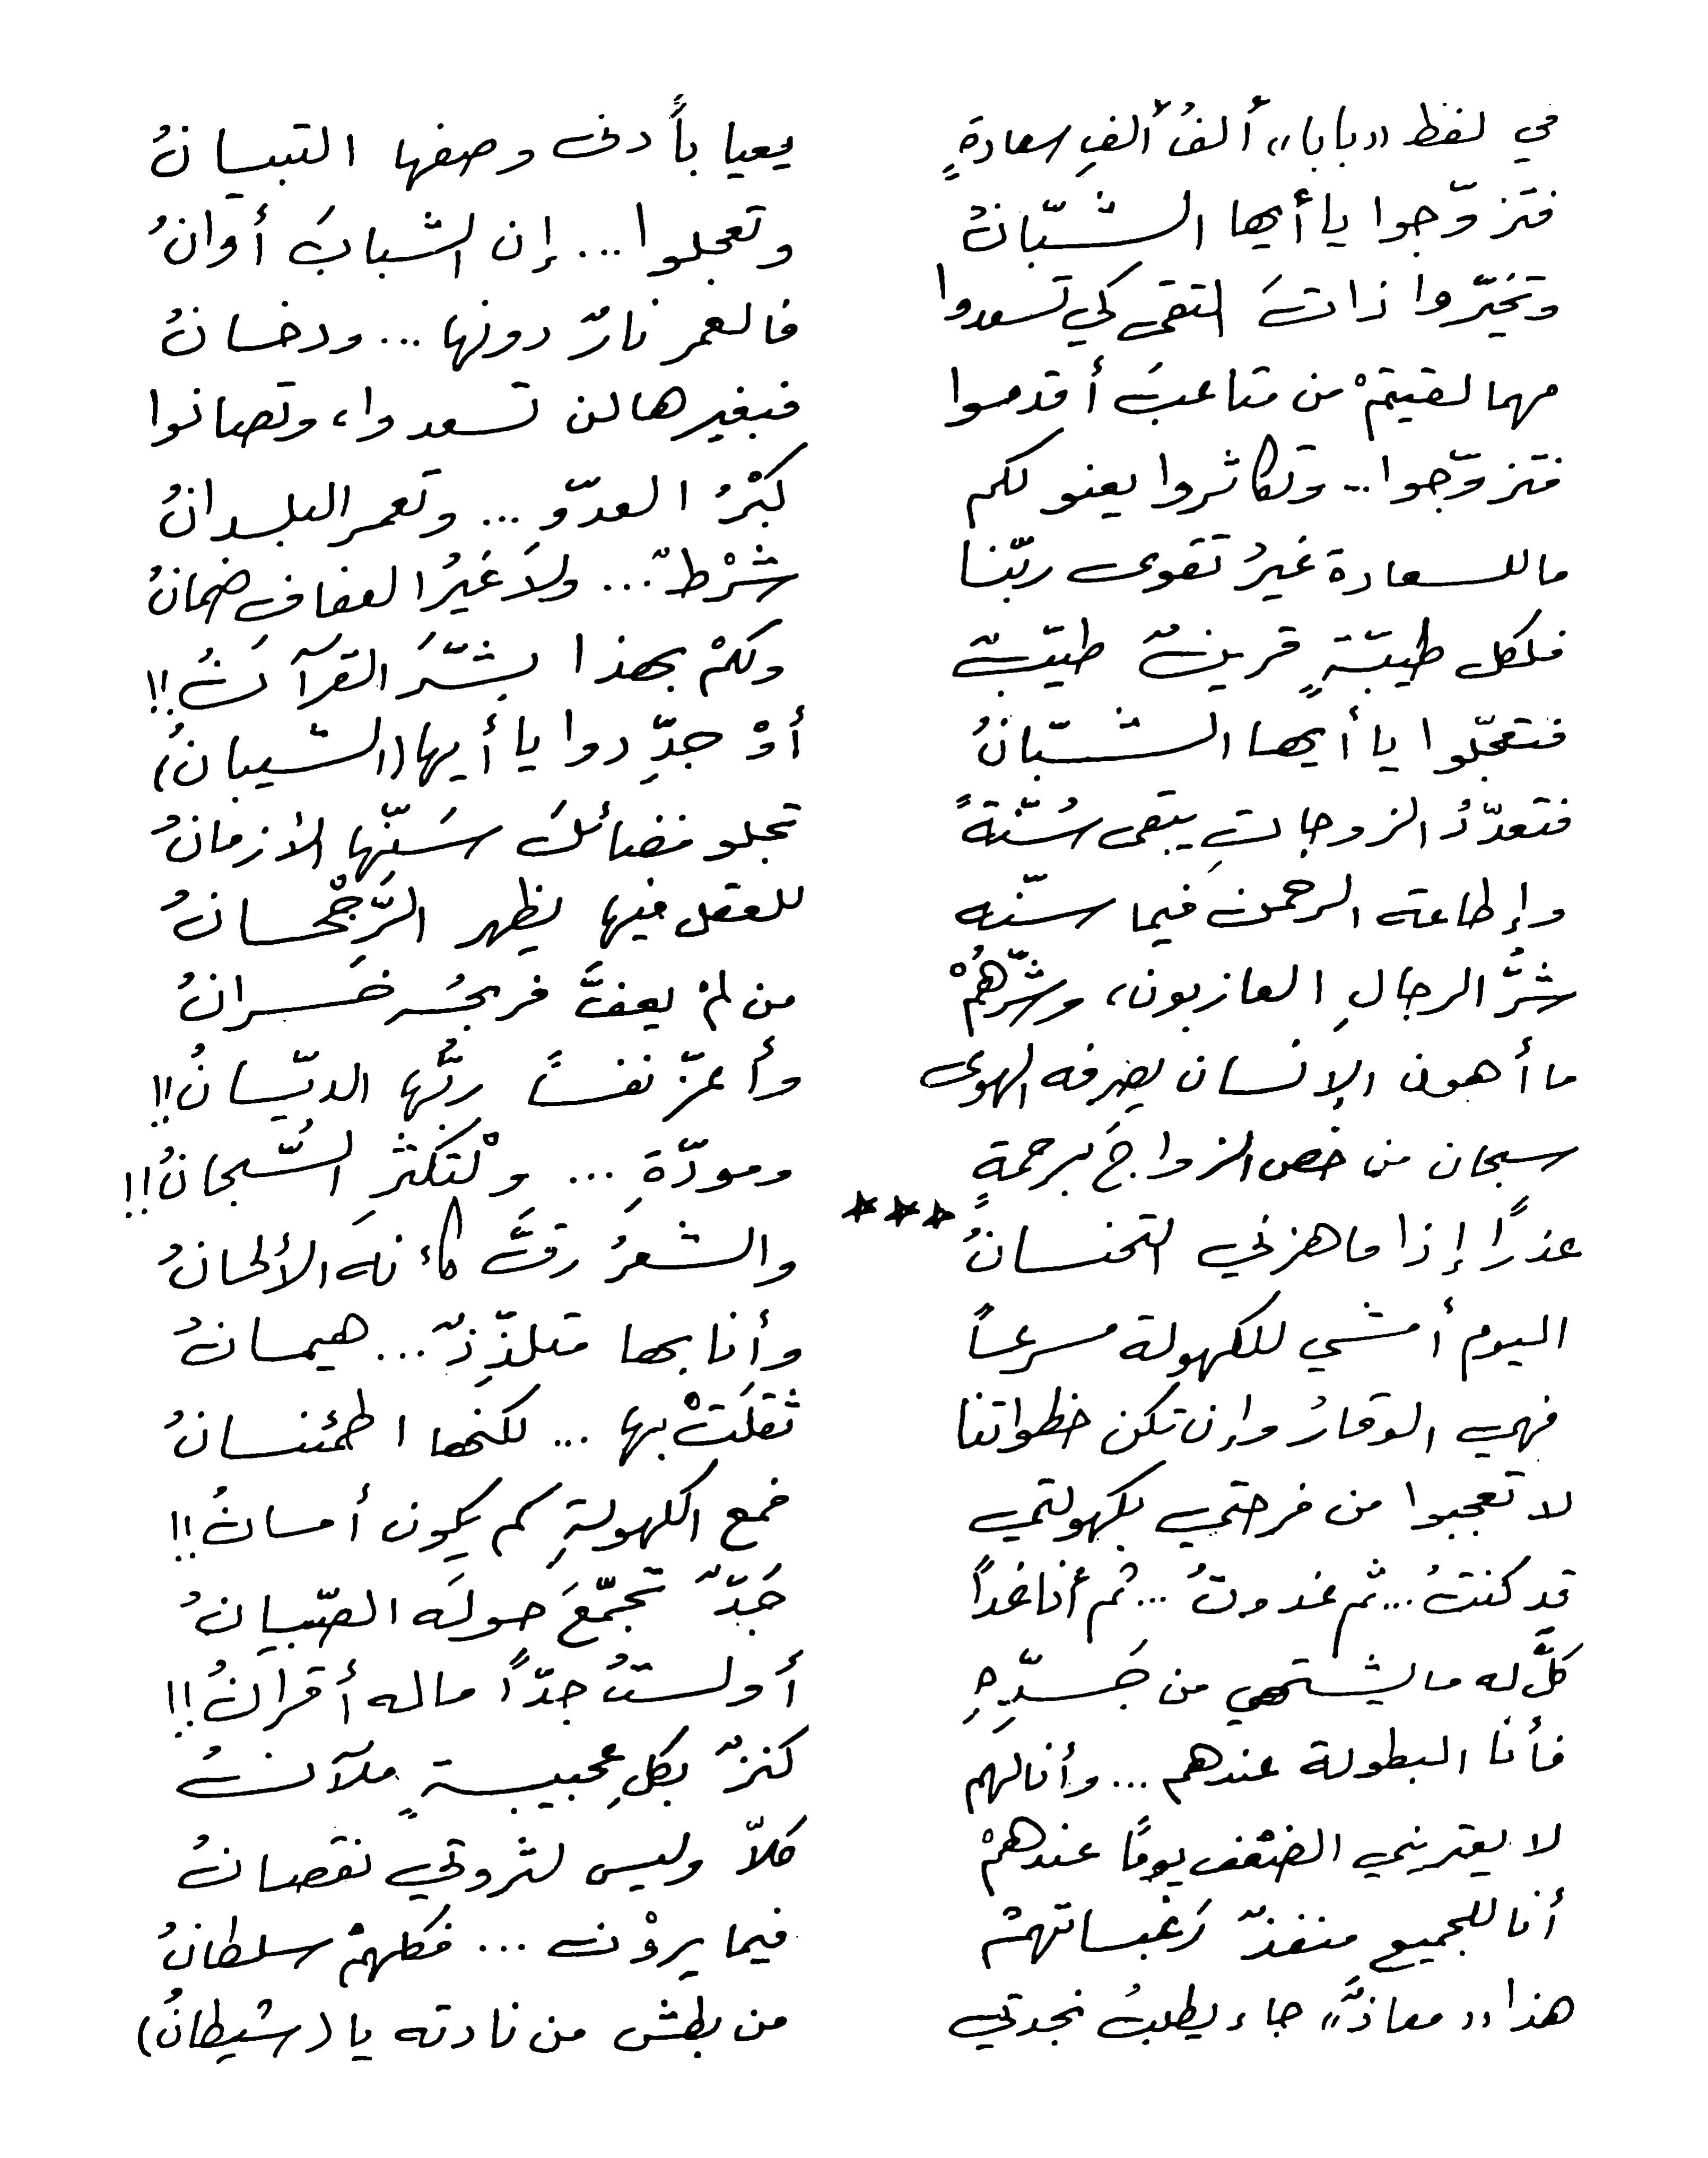 في لفظ «بابا» ألفُ ألفِ سعادةٍ يعيا بأدنى وصفها التبيانُ
فتزوّجوا يا أيها الشبّانُ وتعجلوا... إن الشبابَ أوانُ
وتخيّروا ذاتَ التقى كي تسعدوا فالعمر نارٌ دونها... ودخانُ
مهما لقيتمْ من متاعبَ أقدموا فبغيرها لن تسعدوا، وتصانوا
فتزوّجوا.. وتكاثروا يعنو لكم كبْرُ العدوّ... وتعمر البلدانُ
ما للسعادة غيرُ تقوى ربّنا شرْطٌ... ولا غيرُ العفاف ضمانُ
فلكل طيبّةٍ قرينٌ طيّبٌ ولكمْ بهذا بشّرَ القرآنُ!!
فتعجّلوا يا أيها الشبّانُ أوْ جدِّدوا يا أيها (الشيبانُ)
فتعدّدُ الزوجاتِ يبقى سُنّةً تجلو فضائلَ سَنّها الأزمانُ
وإطاعة الرحمن فيما سنّه للعقل فيها يظهر الرَّجْحانُ
شرُّ الرجالِ العازبون، وشرّهُمْ من لمْ يعفَّ فربحُه خسرانُ
ما أهون الإنسان يصرفه الهوى وأعزّ نفساً ربُّها الديّانُ!!
سبحان من خص الزواجَ برحمةٍ ومودّةِ... ولْتكثرِ السُّبحانُ!!
***
عذرًا إذا ما هزني التحنانُ والشعرُ رقَّ كأنه الألحانُ
اليوم أمشي للكهولة مسرعاً وأنا بها متلذّذٌ... هيمانُ
فهي الوقارُ وإن تكن خطواتنا ثقلَتْ بها... لكنها اطمئنانُ
لا تعجبوا من فرحتي بكهولتي فمع الكهولةِ كم يكون أمانُ!!
قد كنتُ... ثم غدوتُ... ثم أنا غداً جَدٌّ تجمّعَ حوله الصّبيانُ
كلٌّ له ما يشتهي من جَدِّهِ أولستُ جدّاً ماله أقرانُ!!
فأنا البطولة عندهم... وأنا لهم كنزٌ بكلِ عجيبةٍ ملآنُ
لا يعتريني الضعْف يومًا عندهمْ كلاّ وليس لثروتي نقصانُ
أنا للجميع منفذٌ رَغباتهمْ فيما يروْن... فكلهمْ سلطانُ
هذا «معاذٌ» جاء يطلبُ نجدتي من بطش من نادته يا (شيطانُ)